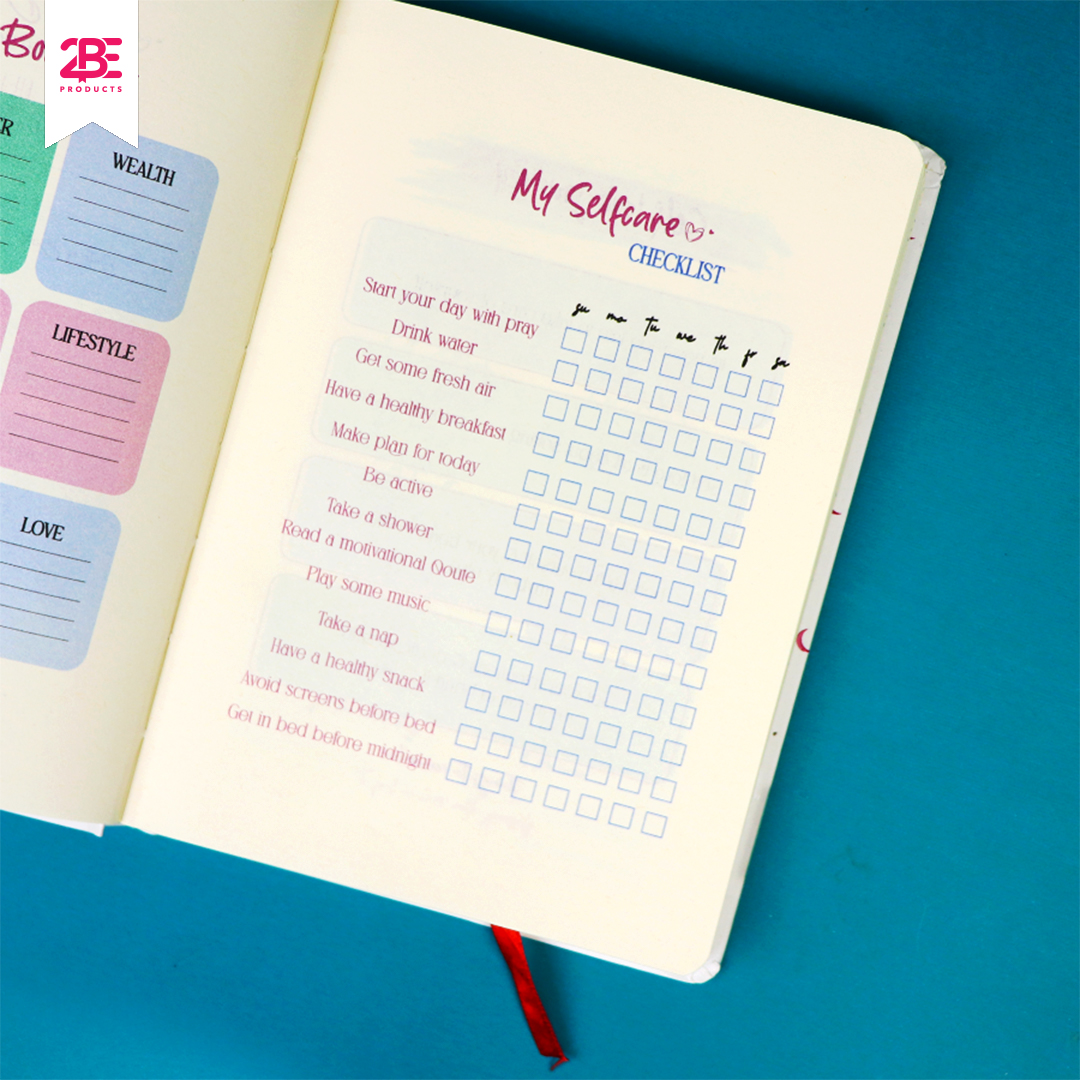 2BE
PRODUCTS
WEALTH
LIFESTYLE
LOVE
My Selfcare
CHECKLIST
su mo tu we th fr sa
Start your day with pray
Drink water
Get some fresh air
Have a healthy breakfast
Make plan for today
Be active
Take a shower
Read a motivational Qoute
Play some music
Take a nap
Have a healthy snack
Avoid screens before bed
Get in bed before midnight